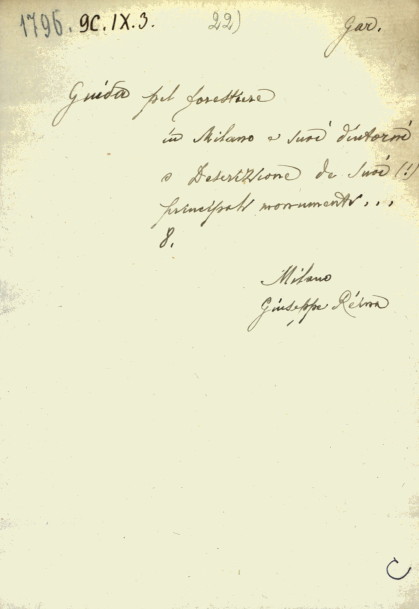 1796. 9C.IX.3. 22) Gar.
Guida pel forestiere
in Milano e suoi dintorni
o Descrizione de suoi (!)
principali monumenti...
8.
Milano
Giuseppe Reina
C